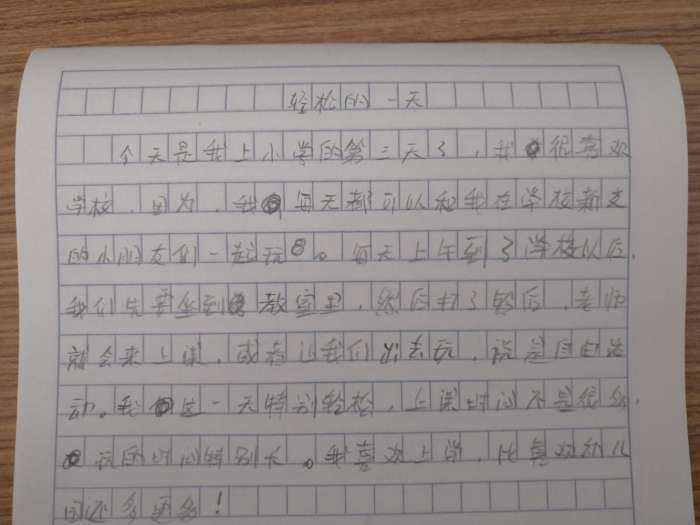 轻松的一天
今天是我上小学的第三天了，我很喜欢
学校，因为，我每天都可以和我在学校新交
的小朋友们一起玩。每天上午到了学校以后，
我们先要坐到教室里，然后打了铃后，老师
就会来上课，或者让我们出去玩，说是自由活
动。我这一天特别轻松，上课时间不是很多，
玩的时间特别长。我喜欢上学，比喜欢幼儿
园还多更多！